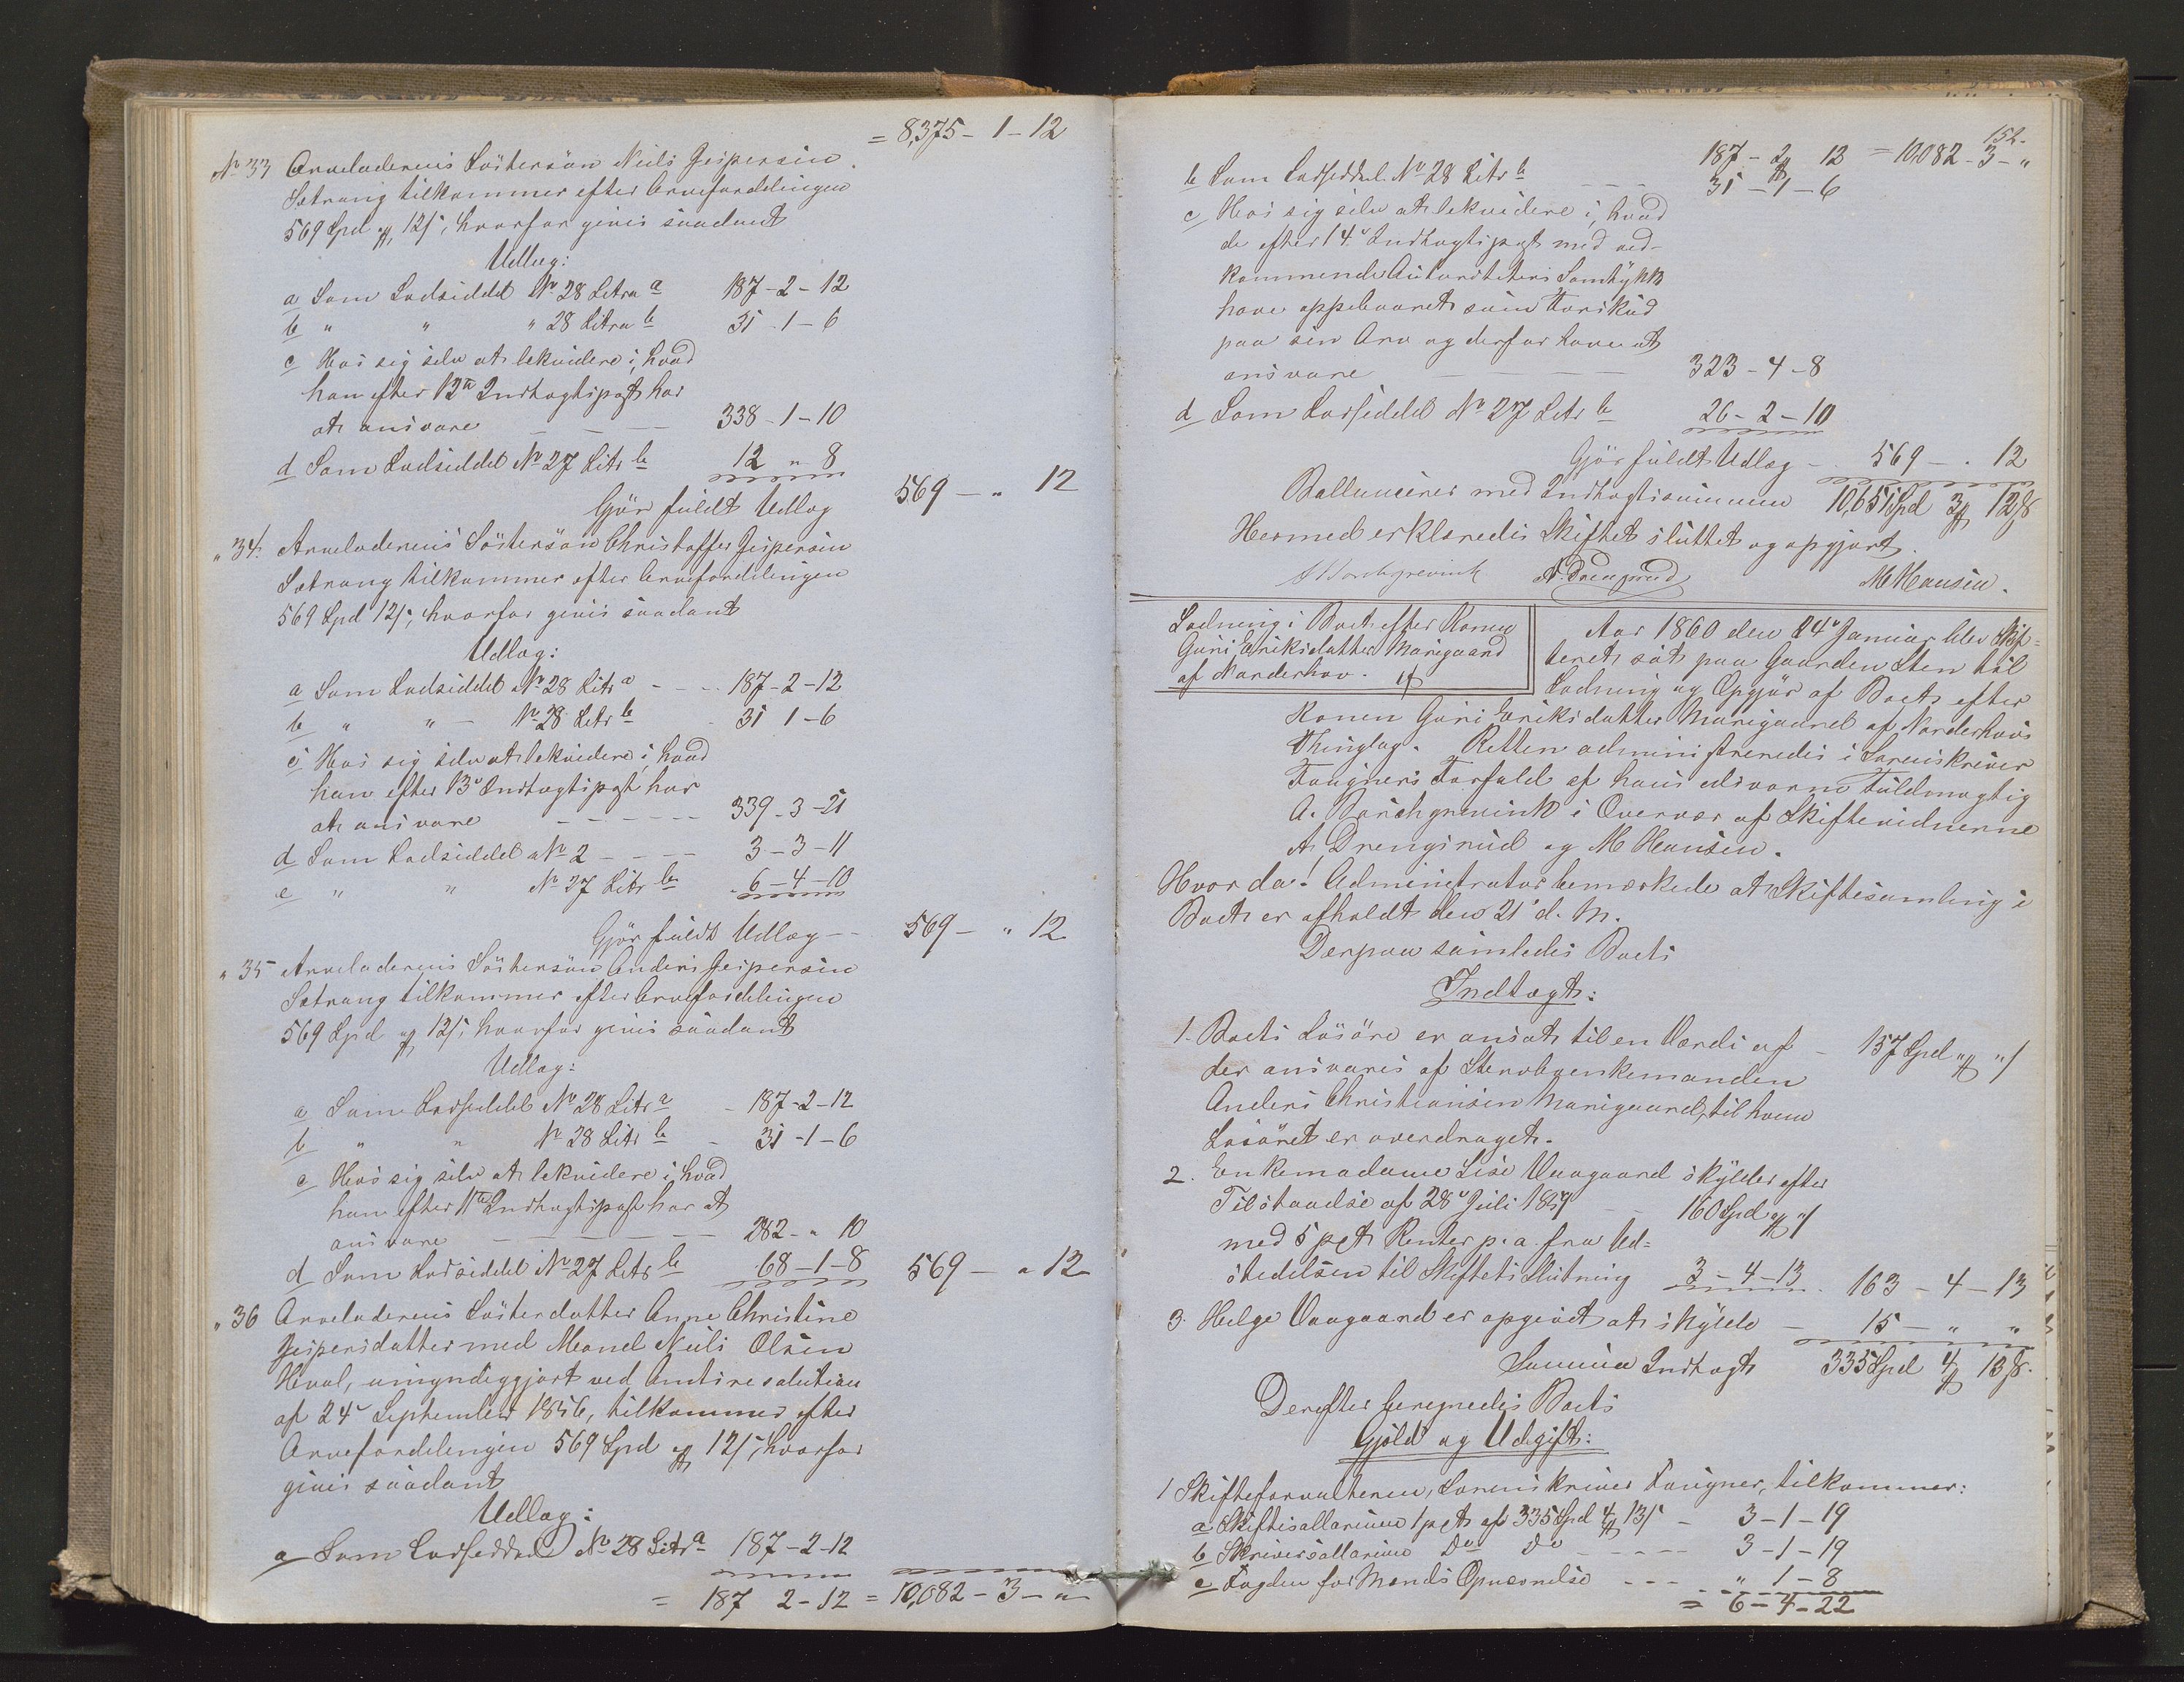 = 8,375 - 1 - 12
No 33 Arveladerens Søstersøn Niels Jespersen
Sætrang tilkommer efter Arvefordelingen
569 Spd „ 12 s, hvorfor gives saadant
Udlæg:
a Som Lodseddel No 28 Litra a 187 - 2 - 12
b „ „ „ 28 Litra b 31 - 1 - 6
c Hos sig selv at lekvidere i, hvad
han efter 12te Indtægtspost har
at ansvare - - - 338 - 1 - 10
d Som Lodseddel No 27 Litr b 12 „ 8
Gjør fuldt Udlæg 569 - „ 12
„ 34. Arveladerens Søstersøn Christoffer Jespersen
Sætrang tilkommer efter Arvefordelingen
569 Spd 12 s, hvorfor gives saadant
Udlæg:
a Som Lodseddel No 28 Litr a - - 187 - 2 - 12
b „ „ - No 28 Litr b - 31 1 - 6
c Hos sig selv at lekvidere i, hvad
han efter 13de Indtægtspost har
at ansvare - - - - - - 339 - 3 - 21
d Som Lodseddel No 2 - - - - 3 - 3 - 11
e „ „ No 27 Litr b - 6 - 4 - 10
Gjør fuldt Udlæg - - 569 - „ 12
„ 35 Arveladerens Søstersøn Anders Jespersen
Sætrang tilkommer efter Arvefordelingen
569 Spd „ 12 s, hvorfor gives saadant
Udlæg:
a Som Lodseddel No 28 Litr a - 187 - 2 - 12
b „ „ No 28 Litr b - 31 - 1 - 6
c Hos sig selv at lekvidere i, hvad
han efter 11te Indtægtspost har at
ansvare - - - - - 282 - „ 10
d Som Lodseddel No 27 Litr b 68 - 1 - 8 569 - „ 12
„ 36 Arveladerens Søsterdatter Anne Christine
Jespersdatter med Mand Niels Olsen
Hval, umyndiggjort ved Amtsresolution
af 24de September 1856, tilkommer efter
Arvefordelingen 569 Spd „ 12 s, hvorfor
gives saadant
Udlæg:
a Som Lodseddel No 28 Litr a 187 - 2 - 12
= 187 2 - 12 = 10,082 - 3 - „
152.
187 - 2 - 12 = 10,082 - 3 - „
b Som Lodseddel No 28 Litr b - - - 31 - 1 - 6
c Hos sig selv at lekvidere i, hvad
de efter 14de Indtægtspost med ved-
kommende Autoriteters Samtykke
have oppebaaret som Forskud
paa sin Arv og derfor have at
ansvare - - - 323 - 4 - 8
d Som Lodseddel No 27 Litr b 26 - 2 - 10
Gjør fuldt Udlæg - 569 - „ 12
Ballancerer med Indtægtssummen 10,651 Spd 3 „ 12 s
Hermed erklæredes Skiftet sluttet og opgjort.
A Borchgrevink A. Drengsrud M Hansen.
Lodning i Boet efter Konen
Guri Eriksdatter Marigaard
af Norderhov.
Aar 1860 den 24de Januar blev Skif-
teret sat paa Gaarden Sten til
Lodning og Opgjør af Boet efter
Konen Guri Eriksdatter Marigaard af Norderhovs
Thinglag. Retten administreredes i Sorenskriver
Faugners Forfald af hans edsvorne Fuldmægtig
A. Borchgrevink i Overvær af Skiftevidnerne
A Drengsrud og M Hansen.
Hvor da! Administrator bemærkede at Skiftesamling i
Boet er afholdt den 21de d. M.
Derpaa samledes Boets
Indtægt:
1. Boets Løsøre er ansat til en Værdi af - 157 Spd „ „ s
der ansvares af Stervboenkemanden
Anders Christiansen Marigaard, til hvem
Løsøret er overdraget.
2. Enkemadame Lise Vaagaard skylder efter
Tilstaaelse af 28de Juli 1859 - - 160 Spd „ „ s
med 5 pct Renter p. a. fra Ud-
stedelsen til Skiftets Slutning 3 - 4 - 13. 163 - 4 - 13
3. Helge Vaagaard er opgivet at skylde - 15 - „ „
Summa Indtægt 335 Spd 4 „ 13 s.
Derefter beregnedes Boets
Gjæld og Udgift:
1 Skifteforvalteren, Sorenskriver Faugner, tilkommer:
a Skiftesallarium 1 pct af 335 Spd 4 „ 13 s - 3 - 1 - 19
b Skriversallarium Do Do - - - - - 3 - 1 - 19
c Fogden for Mands Opnævnelse - - - „ 1 - 8
= 6 - 4 - 22